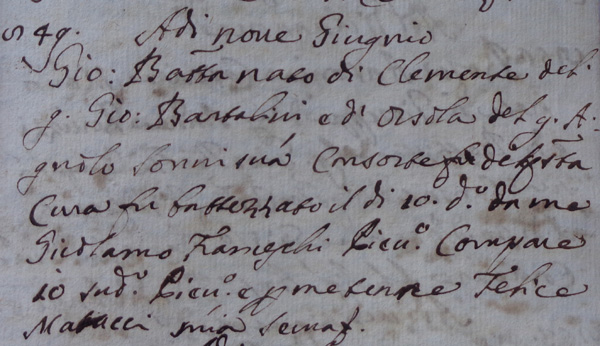 549. Adi nove Giugnio
Gio: Batta nato di Clemente del
q. Gio: Bartalini e di Orsola del q. A-
gnolo Sonni suá Consorte di qsta
Cura fu battezzato il di 10. d.º da me
Girolamo Fameghi Picu.º Compare
io sud.º Picu.º e p me tenne Felice
Matucci mia Servaf.